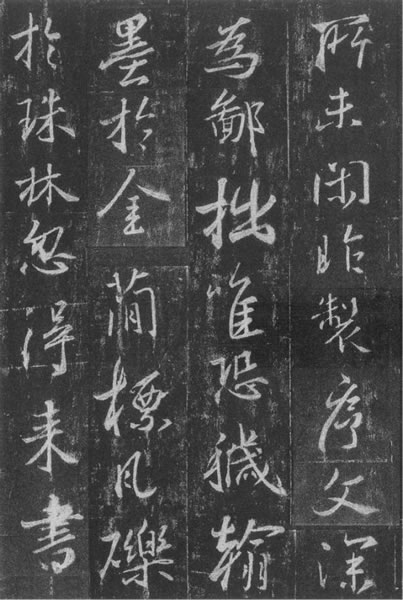 所未閑昨製序文深
為鄙拙唯恐穢翰
墨於金蕳標凡礫
於珠林忽得来書